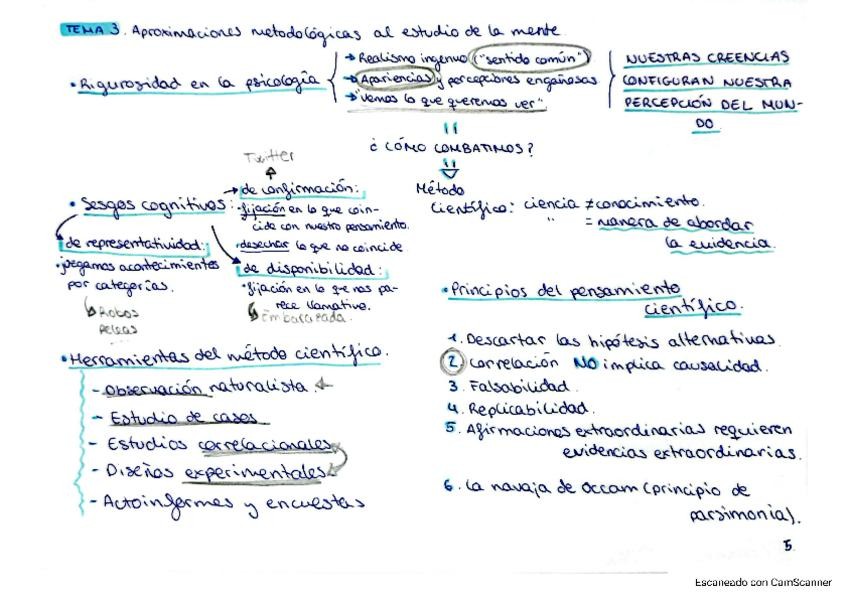 TEMA 3. Aproximaciones metodológicas al estudio de la mente.
• Rigurosidad en la psicología
→ Realismo ingenuo ("sentido común")
→ Apariencias y percepciones engañosas
→ "Vemos lo que queremos ver"
NUESTRAS CREENCIAS
CONFIGURAN NUESTRA
PERCEPCIÓN DEL MUN-
DO.
¿CÓMO COMBATIMOS?
Método
Científico: ciencia ≠ conocimiento.
" = manera de abordar
la evidencia.
Twitter
• Sesgos cognitivos:
→ de confirmación:
• fijación en lo que coin-
cide con nuestro pensamiento.
• desechar lo que no coincide
de representatividad:
• juzgamos acontecimientos
por categorías.
Robos
Peleas
de disponibilidad:
• fijación en lo que nos pa-
rece llamativo.
Embarazada.
• Herramientas del método científico.
- Observación naturalista.
- Estudio de casos
- Estudios correlacionales
- Diseños experimentales
- Autoinformes y encuestas
• Principios del pensamiento
científico.
1. Descartar las hipótesis alternativas.
2. Correlación NO implica causalidad.
3. Falsabilidad.
4. Replicabilidad.
5. Afirmaciones extraordinarias requieren
evidencias extraordinarias.
6. La navaja de Occam (principio de
parsimonia).
5
Escaneado con CamScanner